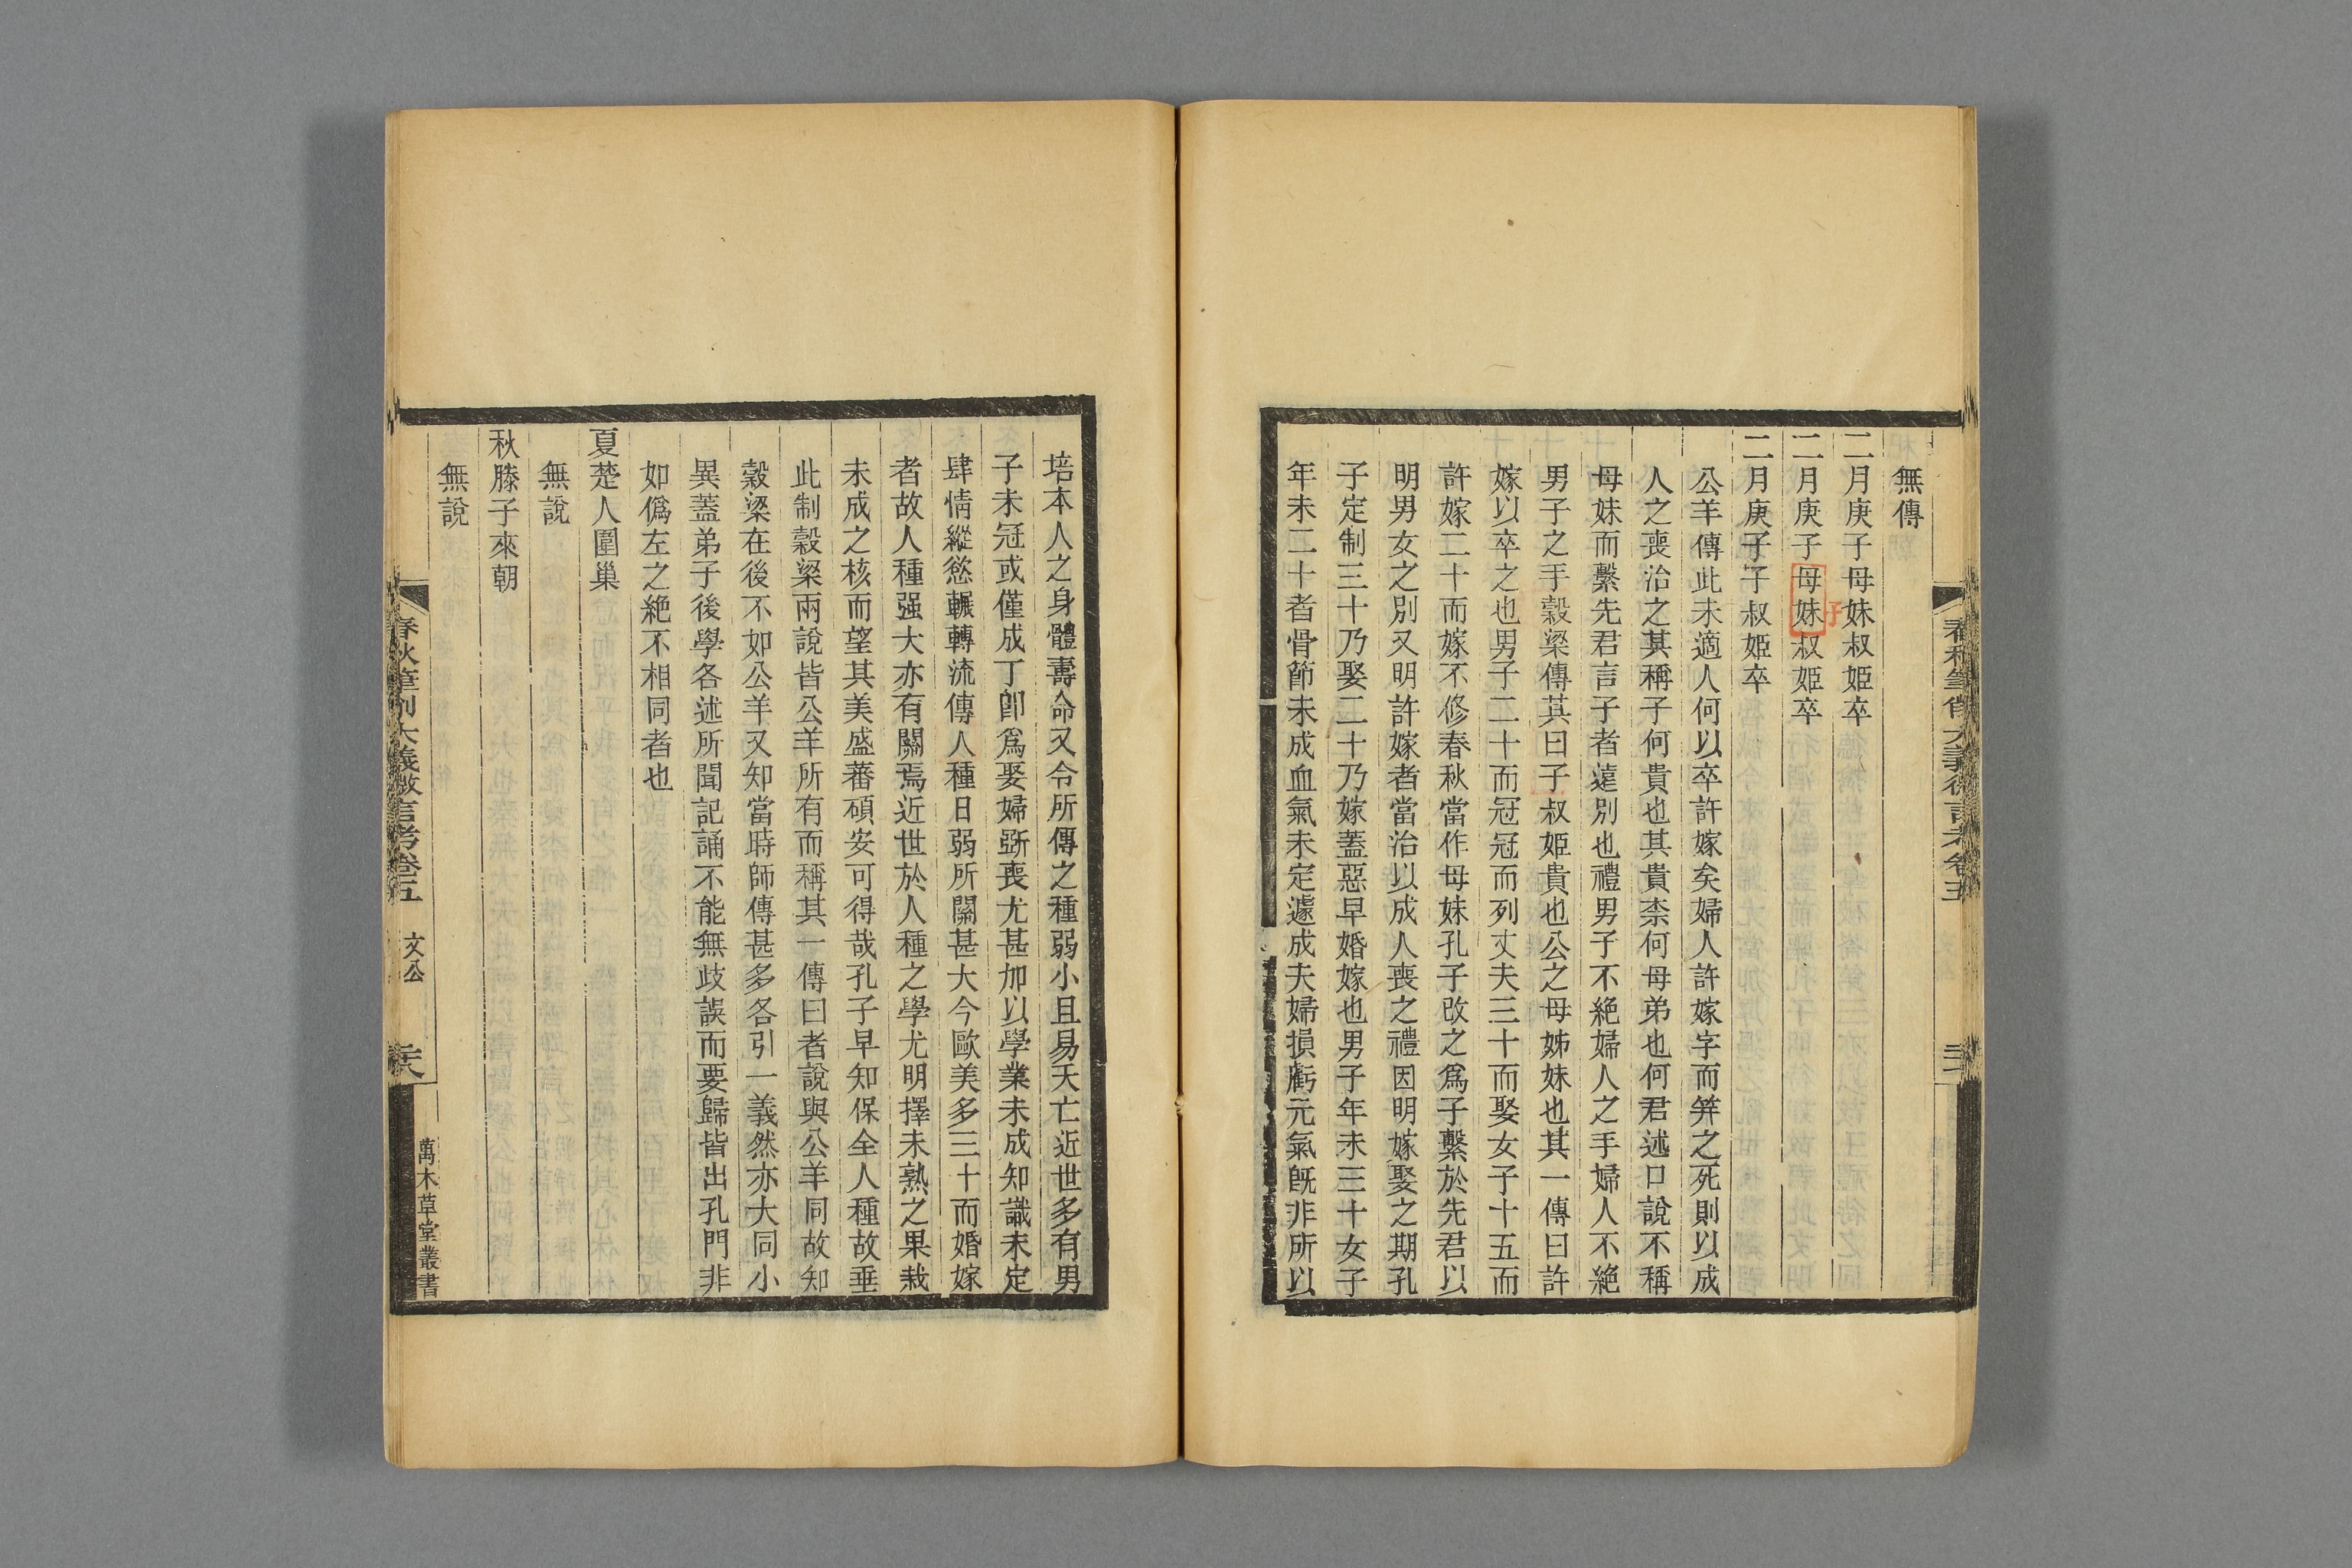 無傳
二月庚子母妹叔姬卒
二月庚子母妹叔姬卒
子
二月庚子子叔姬卒
公羊傳此未適人何以卒許嫁矣婦人許嫁字而笄之死則以成
人之喪治之其稱子何貴也其貴柰何母弟也何君述口說不稱
母妹而繫先君言子者遠別也禮男子不絕婦人之手婦人不絕
男子之手穀梁傳其曰子叔姬貴也公之母姊妹也其一傳曰許
嫁以卒之也男子二十而冠冠而列丈夫三十而娶女子十五而
許嫁二十而嫁不修春秋當作母妹孔子改之爲子繫於先君以
明男女之別又明許嫁者當治以成人喪之禮因明嫁娶之期孔
子定制三十乃娶二十乃嫁蓋惡早婚嫁也男子年未三十女子
年未二十者骨節未成血氣未定遽成夫婦損虧元氣旣非所以
培本人之身體壽命又令所傳之種弱小且易夭亡近世多有男
子未冠或僅成丁卽爲娶婦斲喪尤甚加以學業未成知識未定
肆情縱慾輾轉流傳人種日弱所關甚大今歐美多三十而婚嫁
者故人種强大亦有關焉近世於人種之學尤明擇未熟之果栽
未成之核而望其美盛蕃碩安可得哉孔子早知保全人種故垂
此制穀梁兩說皆公羊所有而稱其一傳曰者說與公羊同故知
穀梁在後不如公羊又知當時師傳甚多各引一義然亦大同小
異蓋弟子後學各述所聞記誦不能無歧誤而要歸皆出孔門非
如僞左之絕不相同者也
夏楚人圍巢
無說
秋滕子來朝
無說
春秋筆削大義微言考卷五 文公
萬木草堂叢書